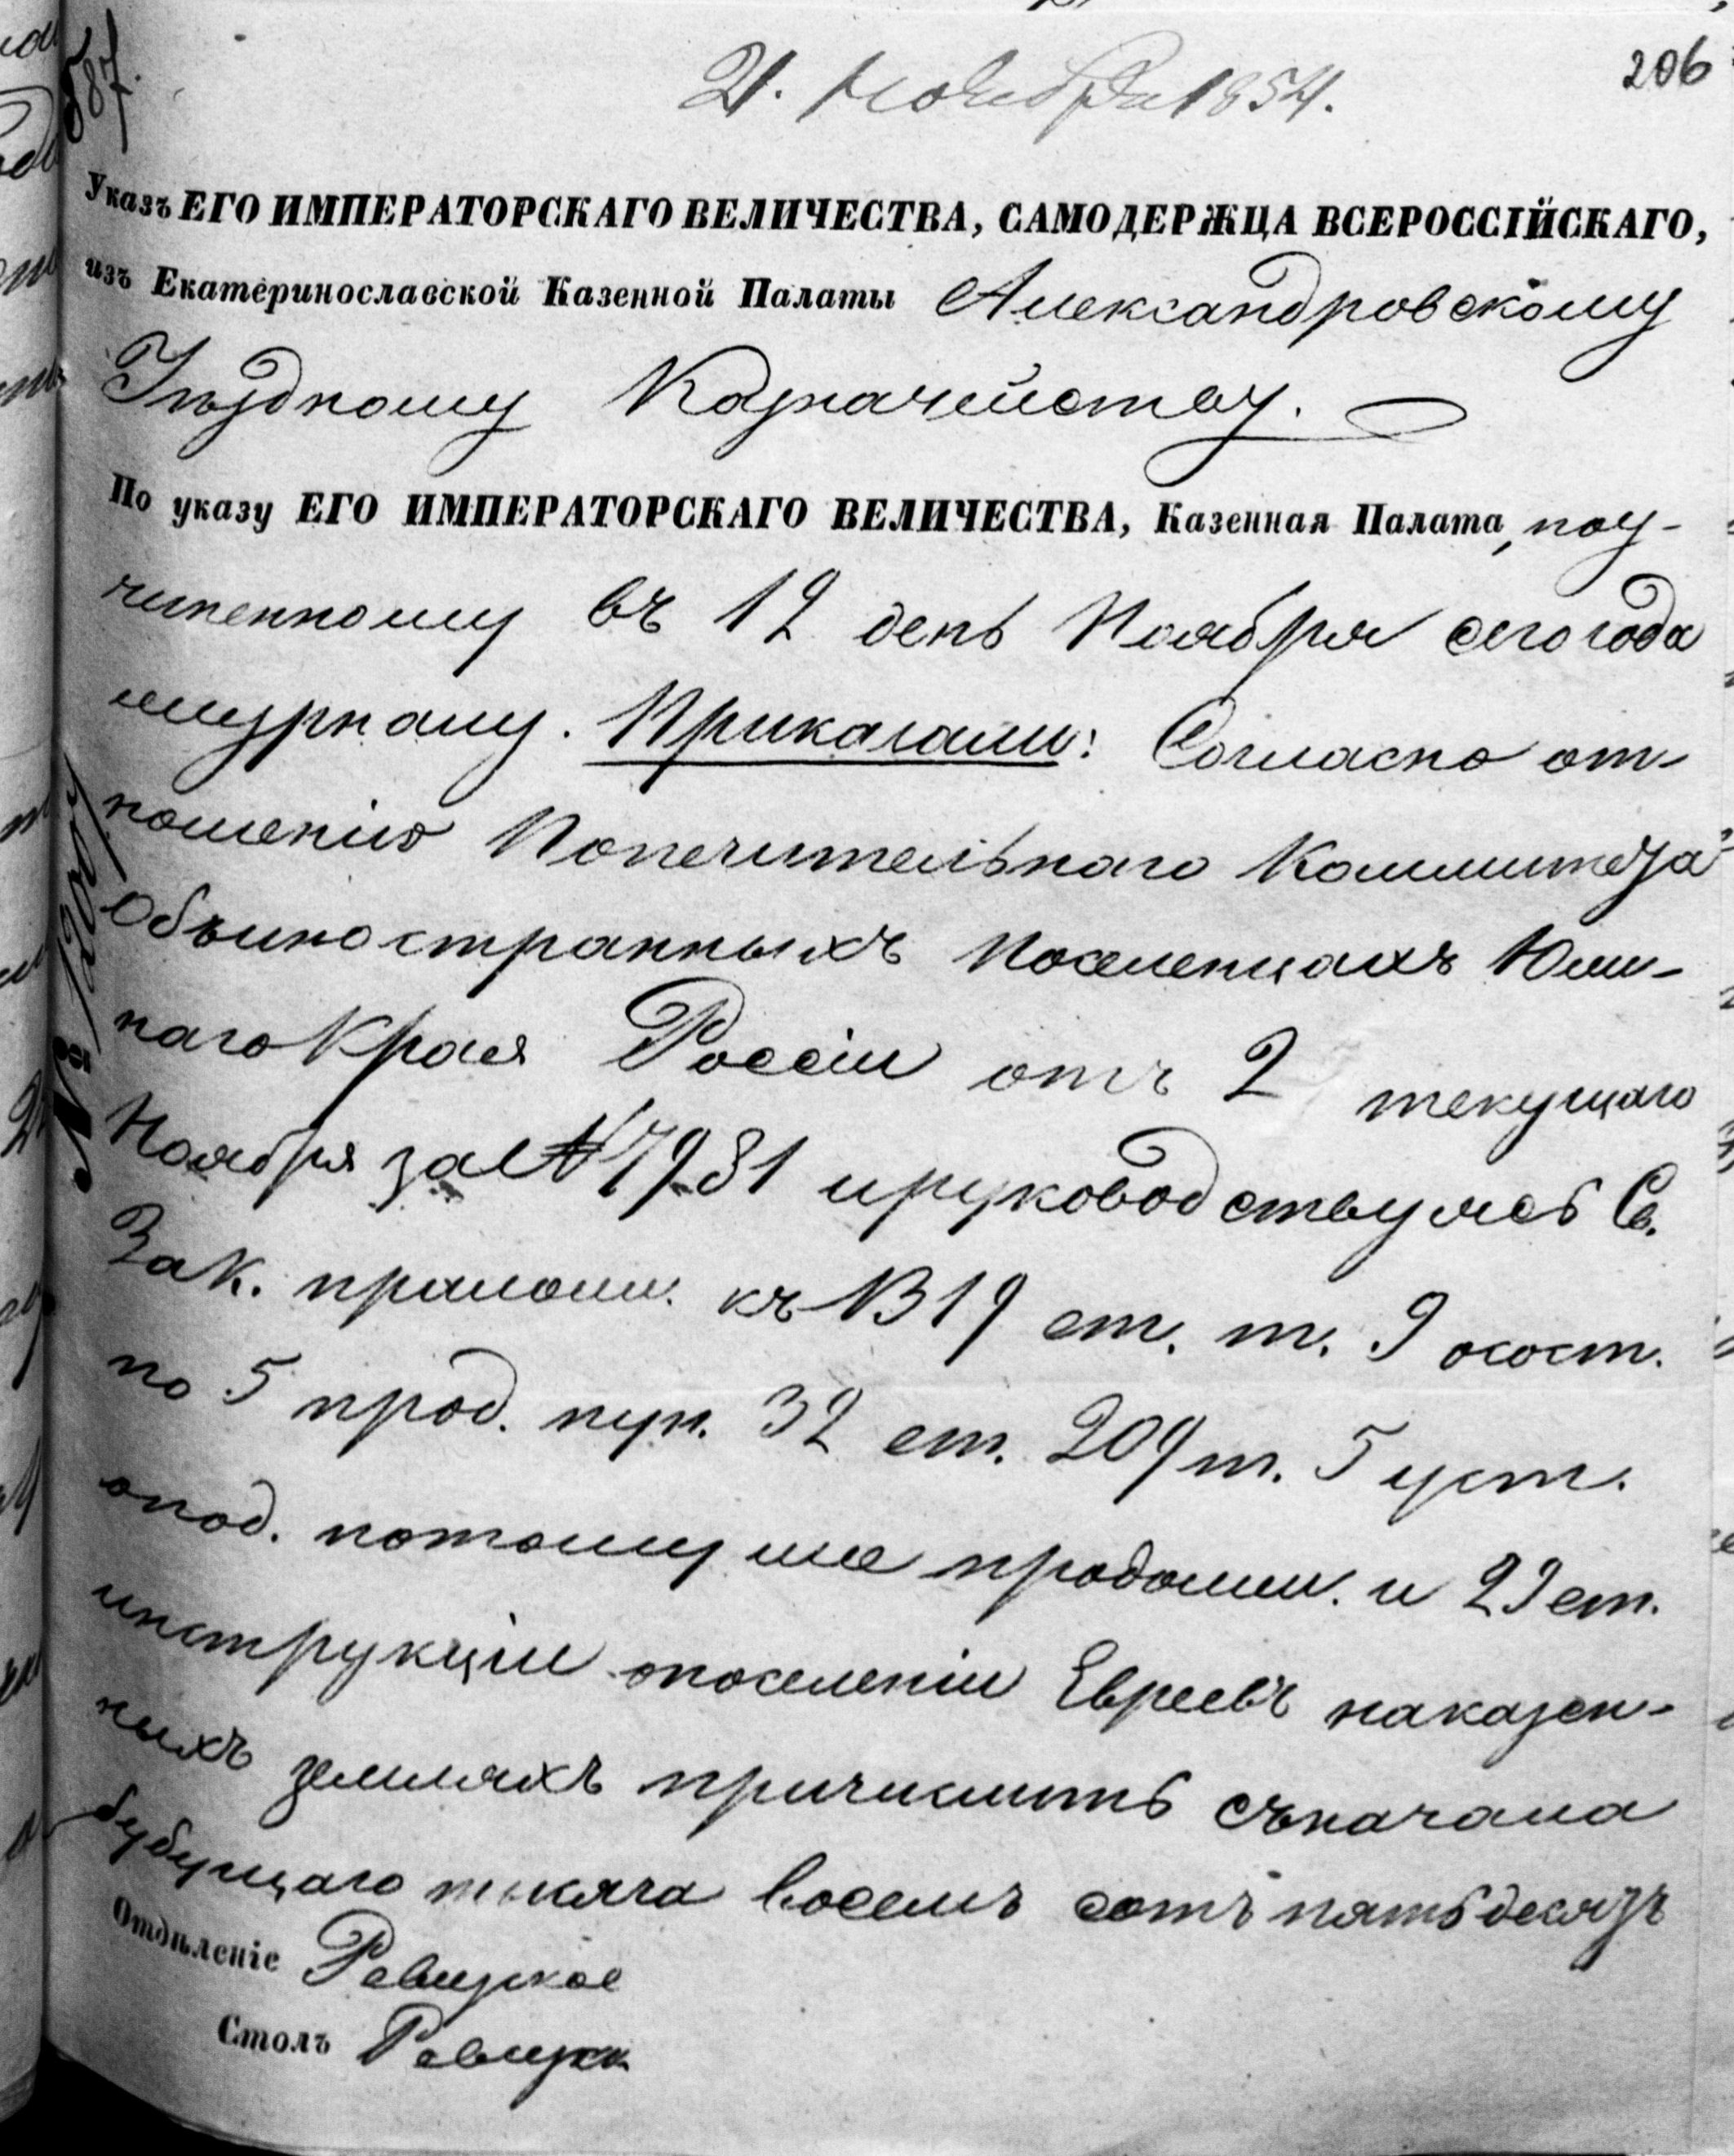 206
587.
21. Ноября 1854.
Указъ ЕГО ИМПЕРАТОРСКАГО ВЕЛИЧЕСТВА, САМОДЕРЖЦА ВСЕРОССІЙСКАГО,
изъ Екатеринославской Казенной Палаты Александровскому
Уѣздному Казначейству.
По указу ЕГО ИМПЕРАТОРСКАГО ВЕЛИЧЕСТВА, Казенная Палата, по у-
чиненному въ 12 день Ноября сего года
журналу. Приказали: Согласно от-
ношенію Попечительнаго Коммитета
Объ иностранныхъ Поселенцахъ Юж-
наго Края Россіи отъ 2 текущаго
Ноября за № 7981 и руководствуясь Св.
Зак. прилож. къ 1319 ст. т. 9 о сост.
по 5 прод. пун. 32 ст. 209 т. 5 уст.
о под. по тому же продолж. и 23 ст.
инструкціи о поселеніи Евреевъ на казен-
ныхъ земляхъ причислить съ начала
будущаго тысяча восемь сотъ пятьдесятъ
Отдѣленіе Ревизское
Столъ Ревизск